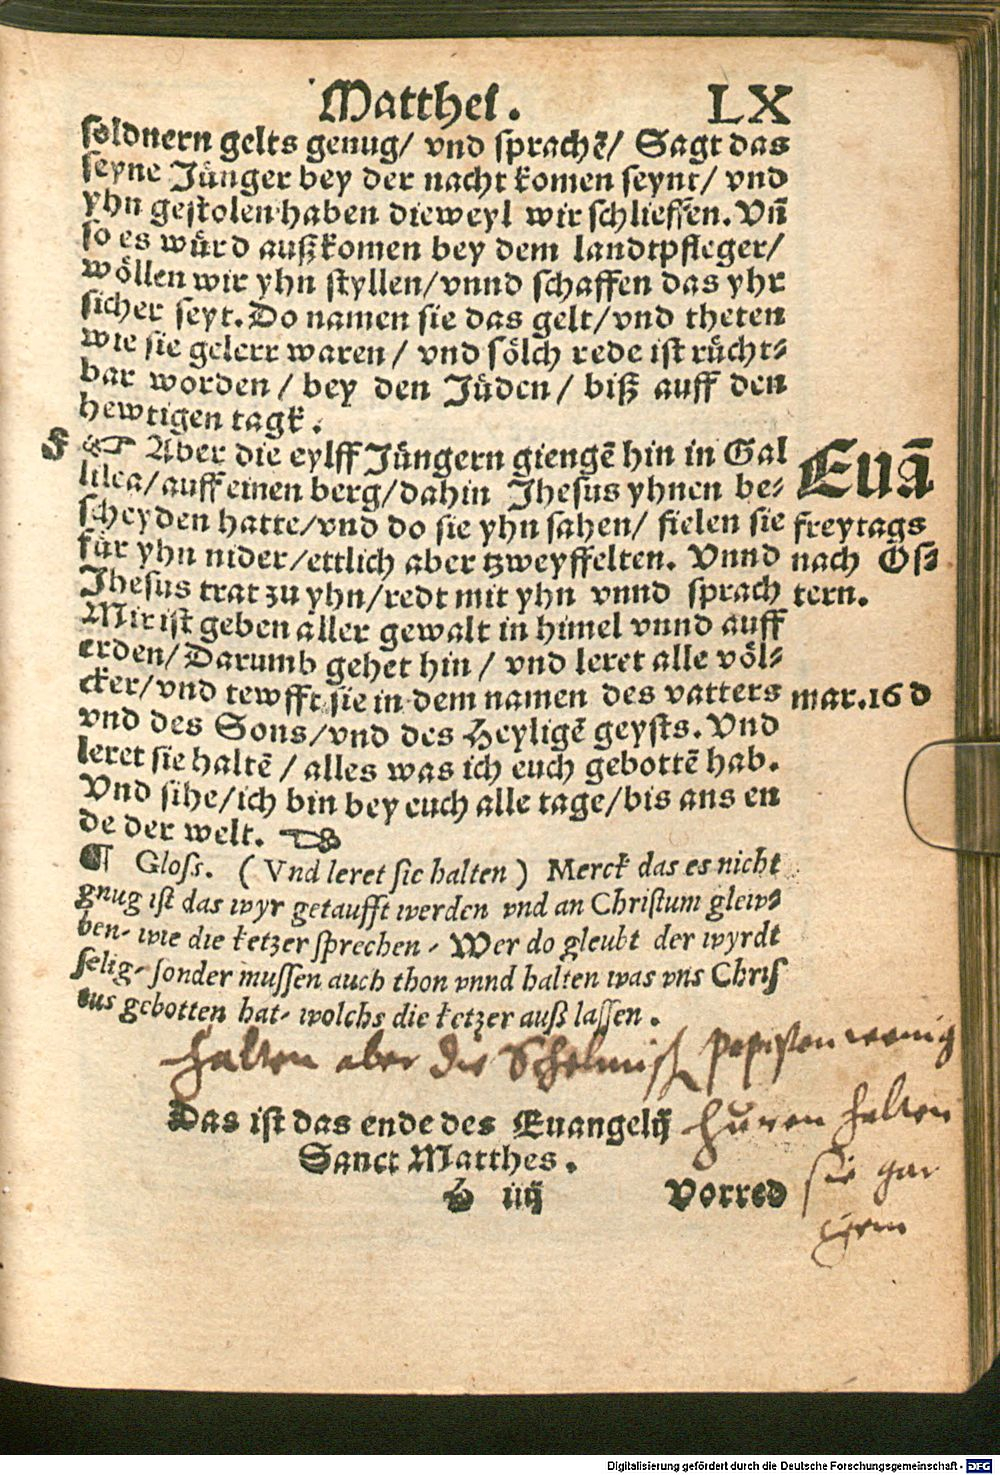 Matthei. LX
sőldnern gelts genug/ vnd sprachẽ/ Sagt das
seyne Jünger bey der nacht komen seynt/ vnd
yhn gestolen haben dieweyl wir schlieffen. Vñ
so es würd außkomen bey dem landtpfleger/
wöllen wir yhn styllen/ vnnd schaffen das yhr
sicher seyt. Do namen sie das gelt/ vnd theten
wie sie gelert waren/ vnd sölch rede ist rücht-
bar worden/ bey den Jüden/ biß auff den
hewtigen tagk.
F ☞ Aber die eylff Jüngern giengẽ hin in Gal
lilea/ auff einen berg/ dahin Jhesus yhnen be-
scheyden hatte/ vnd do sie yhn sahen/ fielen sie
für yhn nider/ ettlich aber tzweyffelten. Vnnd
Jhesus trat zu yhn/ redt mit yhn vnnd sprach
Mir ist geben aller gewalt in himel vnnd auff
erden/ Darumb gehet hin/ vnd leret alle völ-
cker/ vnd tewfft sie in dem namen des vatters
vnd des Sons/ vnd des Heyligẽ geysts. Vnd
leret sie haltẽ/ alles was ich euch gebottẽ hab.
Vnd sihe/ ich bin bey euch alle tage/ bis ans en
de der welt.
Euã
freytags
nach Os-
tern.
mar.16 d
¶ Gloss. (Vnd leret sie halten) Merck das es nicht
gnug ist das wyr getaufft werden vnd an Christum glew-
ben- wie die ketzer sprechen- Wer do gleubt der wyrdt
selig- sonder mussen auch thon vnnd halten was vns Chris
tus gebotten hat- wolchs die ketzer auß lassen.
halten aber die Schelmisch papisten wenig
huren halten
sie gar
gern
Das ist das ende des Euangelij
Sanct Matthes.
H iiij Vorred
Digitalisierung gefördert durch die Deutsche Forschungsgemeinschaft - DFG